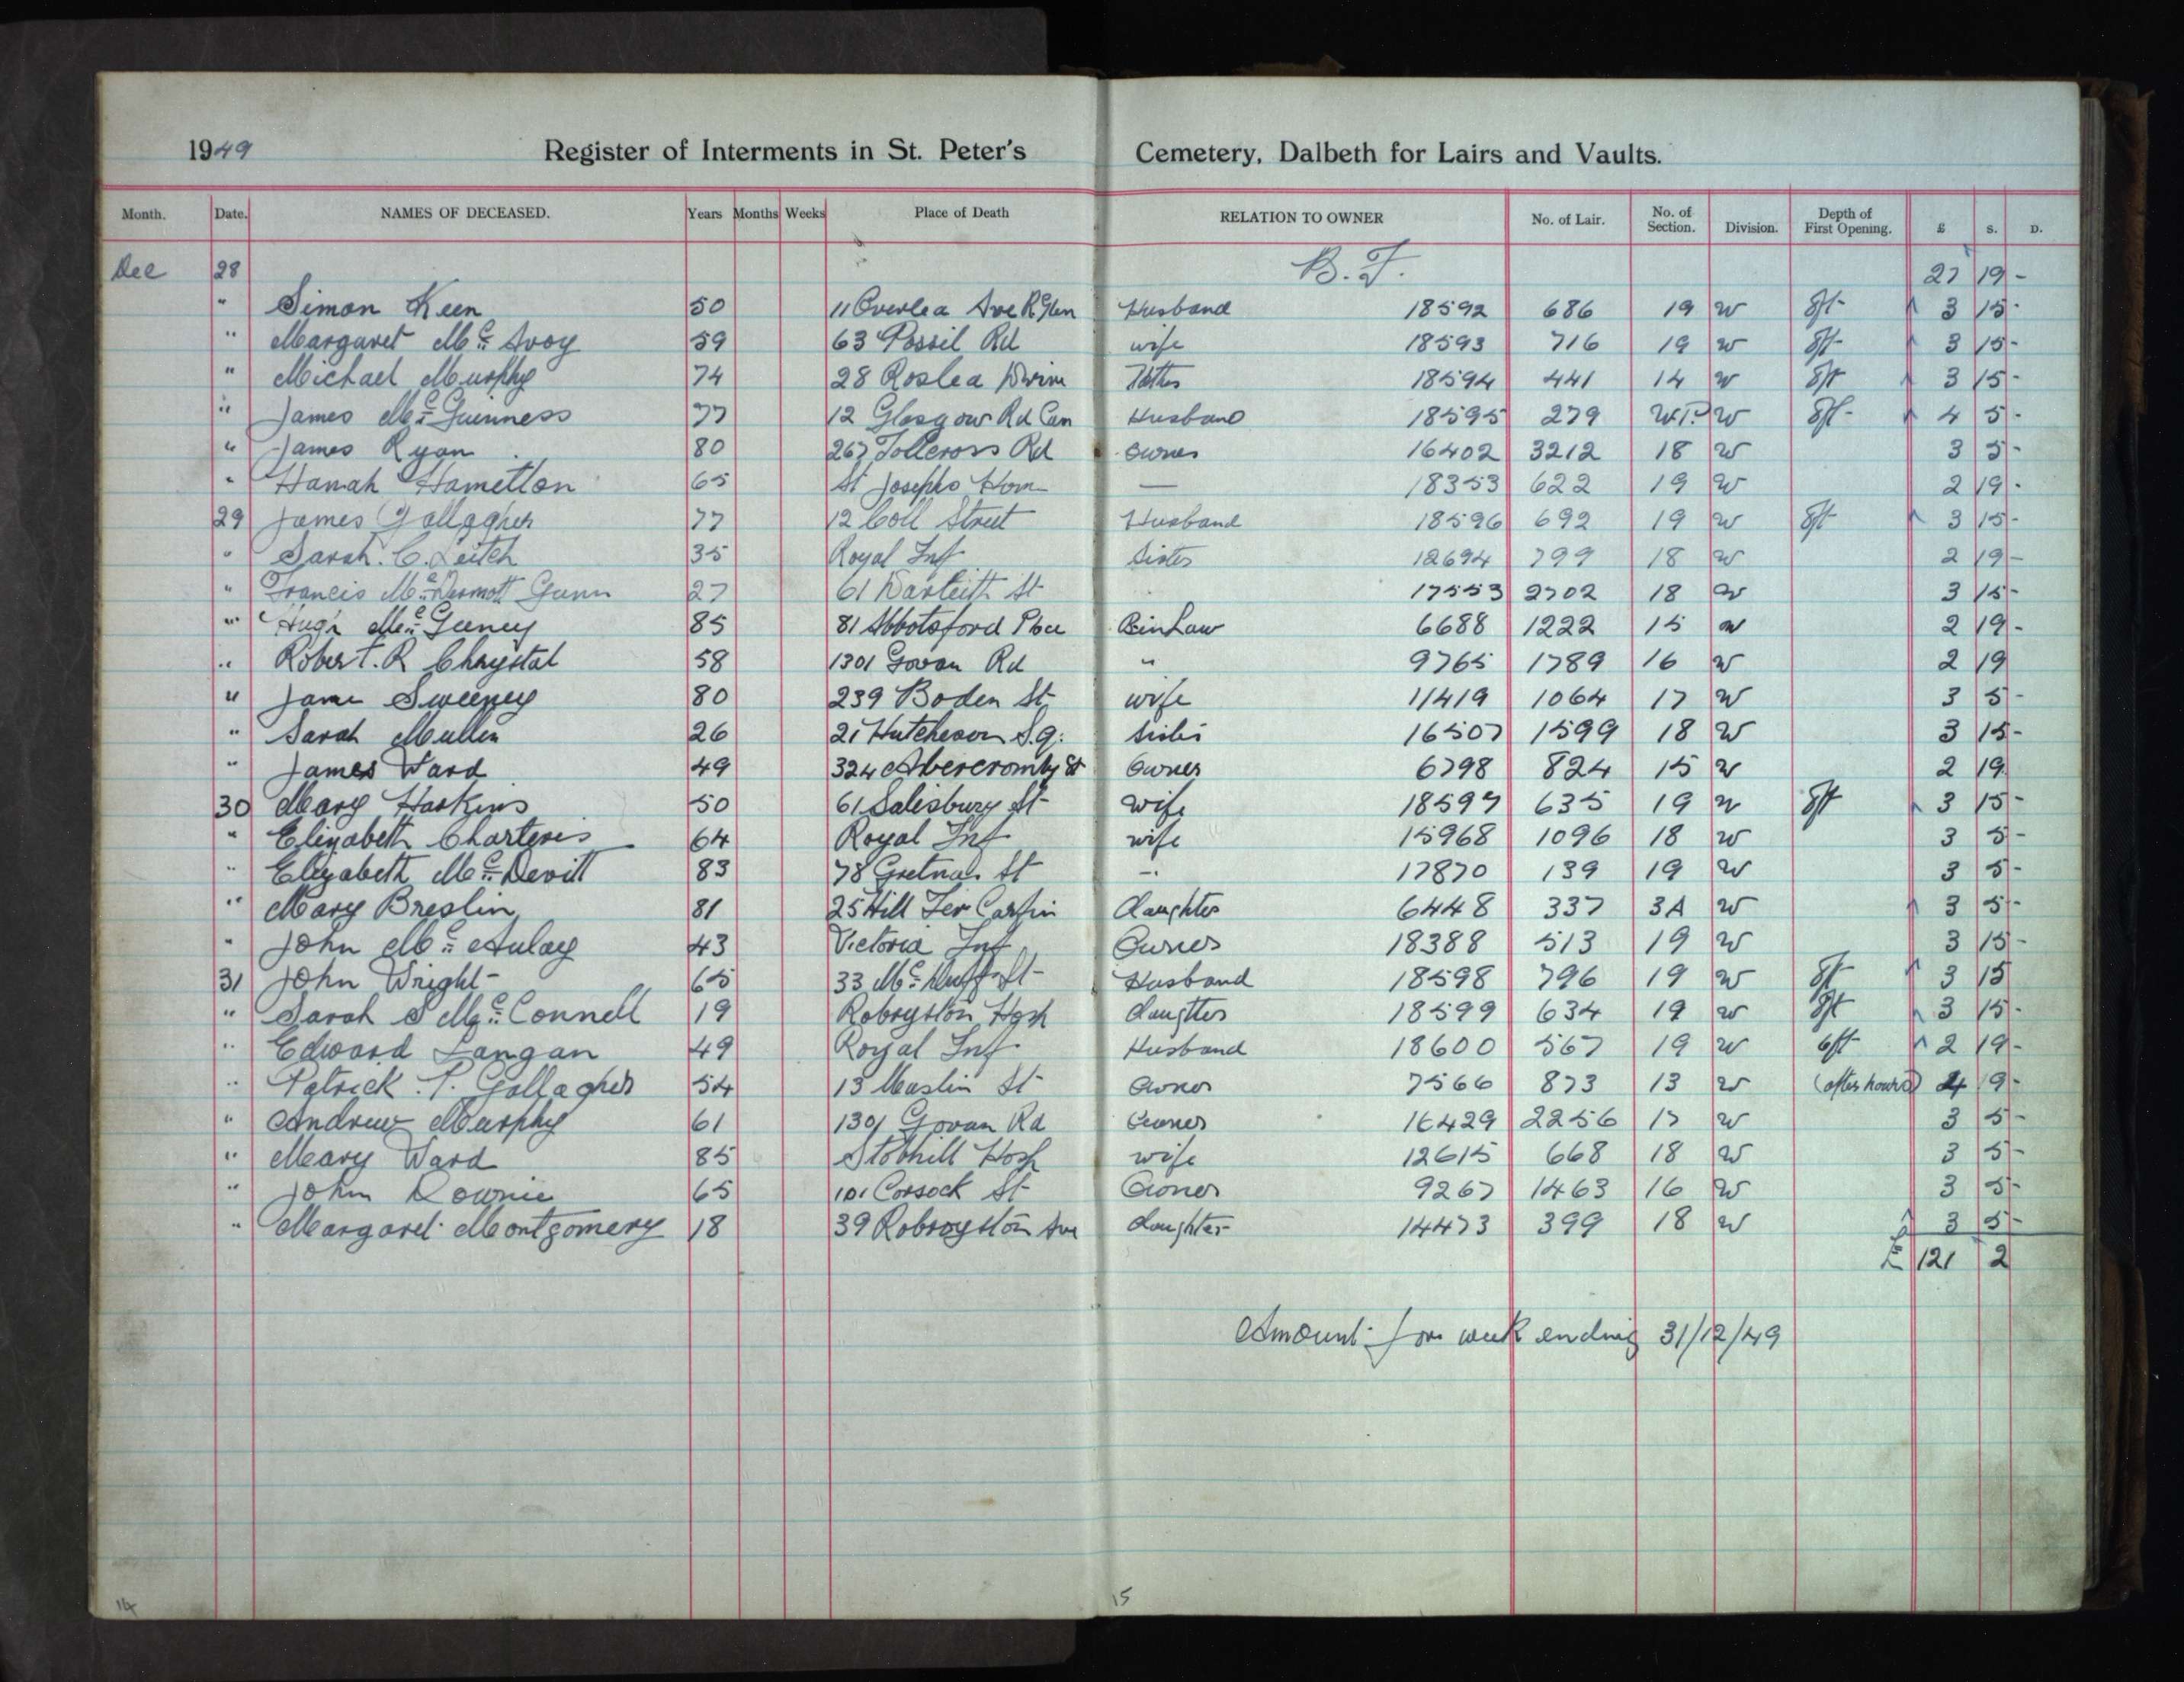 1949 Register of Interments in St. Peter's Cemetery, Dalbeth for Lairs and Vaults.
Month. Date. NAMES OF DECEASED. Years Months Weeks Place of Death RELATION TO OWNER No. of Lair. No. of Section. Division. Depth of First Opening. £ S. D.
Dec 28 B.F. 27 19 -
" Simon Keen 50 11 Overlea Ave R'Glen Husband 18592 686 19 W 8ft 3 15 -
" Margaret McAvoy 59 63 Possil Rd wife 18593 716 19 W 8ft 3 15 -
" Michael Murphy 74 28 Roslea Drive 18594 441 14 W 8ft 3 15 -
" James McGuinness 77 12 Glasgow Rd Cam Husband 18595 279 W.P. W 8ft 4 5 -
" James Ryan 80 267 Tollcross Rd owner 16402 3212 18 W 3 5 -
" Hannah Hametton 65 St Josephs Home — 18353 622 19 W 2 19 -
29 James Gallagher 77 12 Coll Street Husband 18596 692 19 W 8ft 3 15 -
" Sarah. C. Leitch 35 Royal Inf Sister 12694 799 18 W 2 19 -
" Francis McDermott Gunn 27 61 Darleith St 17553 2702 18 W 3 15 -
" Hugh McGeeney 85 81 Abbotsford Place BinLaw 6688 1222 15 W 2 19 -
" Robert. R Chrystal 58 1301 Govan Rd " 9765 1789 16 W 2 19
" Jane Sweeney 80 239 Boden St wife 11419 1064 17 W 3 5 -
" Sarah Mullen 26 21 Hutcheson Sq. Sister 16507 1599 18 W 3 15 -
" James Ward 49 324 Abercromby St Owner 6798 824 15 W 2 19
30 Mary Haskins 50 61 Salisbury St wife 18597 635 19 W 8ft 3 15 -
" Elizabeth Charteris 64 Royal Inf wife 15968 1096 18 W 3 5 -
" Elizabeth McDevitt 83 78 Gretna St - 17870 139 19 W 3 5 -
" Mary Breslin 81 25 Hill Ter Carfin daughter 6448 337 3A W 3 5 -
" John McAulay 43 Victoria Inf Owner 18388 513 19 W 3 15 -
31 John Wright 65 33 McDuff St Husband 18598 796 19 W 8ft 3 15
" Sarah S McConnell 19 Robroyston Hosp daughter 18599 634 19 W 8ft 3 15 -
" Edward Langan 49 Royal Inf Husband 18600 567 19 W 6ft 2 19 -
" Patrick. P. Gallagher 54 13 Maslin St owner 7566 873 13 W (after hours) 4 9 -
" Andrew Murphy 61 1301 Govan Rd Owner 16429 2256 17 W 3 5 -
" Mary Ward 85 Stobhill Hosp wife 12615 668 18 W 3 5 -
" John Downie 65 101 Corsock St Owner 9267 1463 16 W 3 5 -
" Margaret Montgomery 18 39 Robroyston Ave daughter 14473 399 18 W 3 5 -
121 2
Amount for week ending 31/12/49
14 15